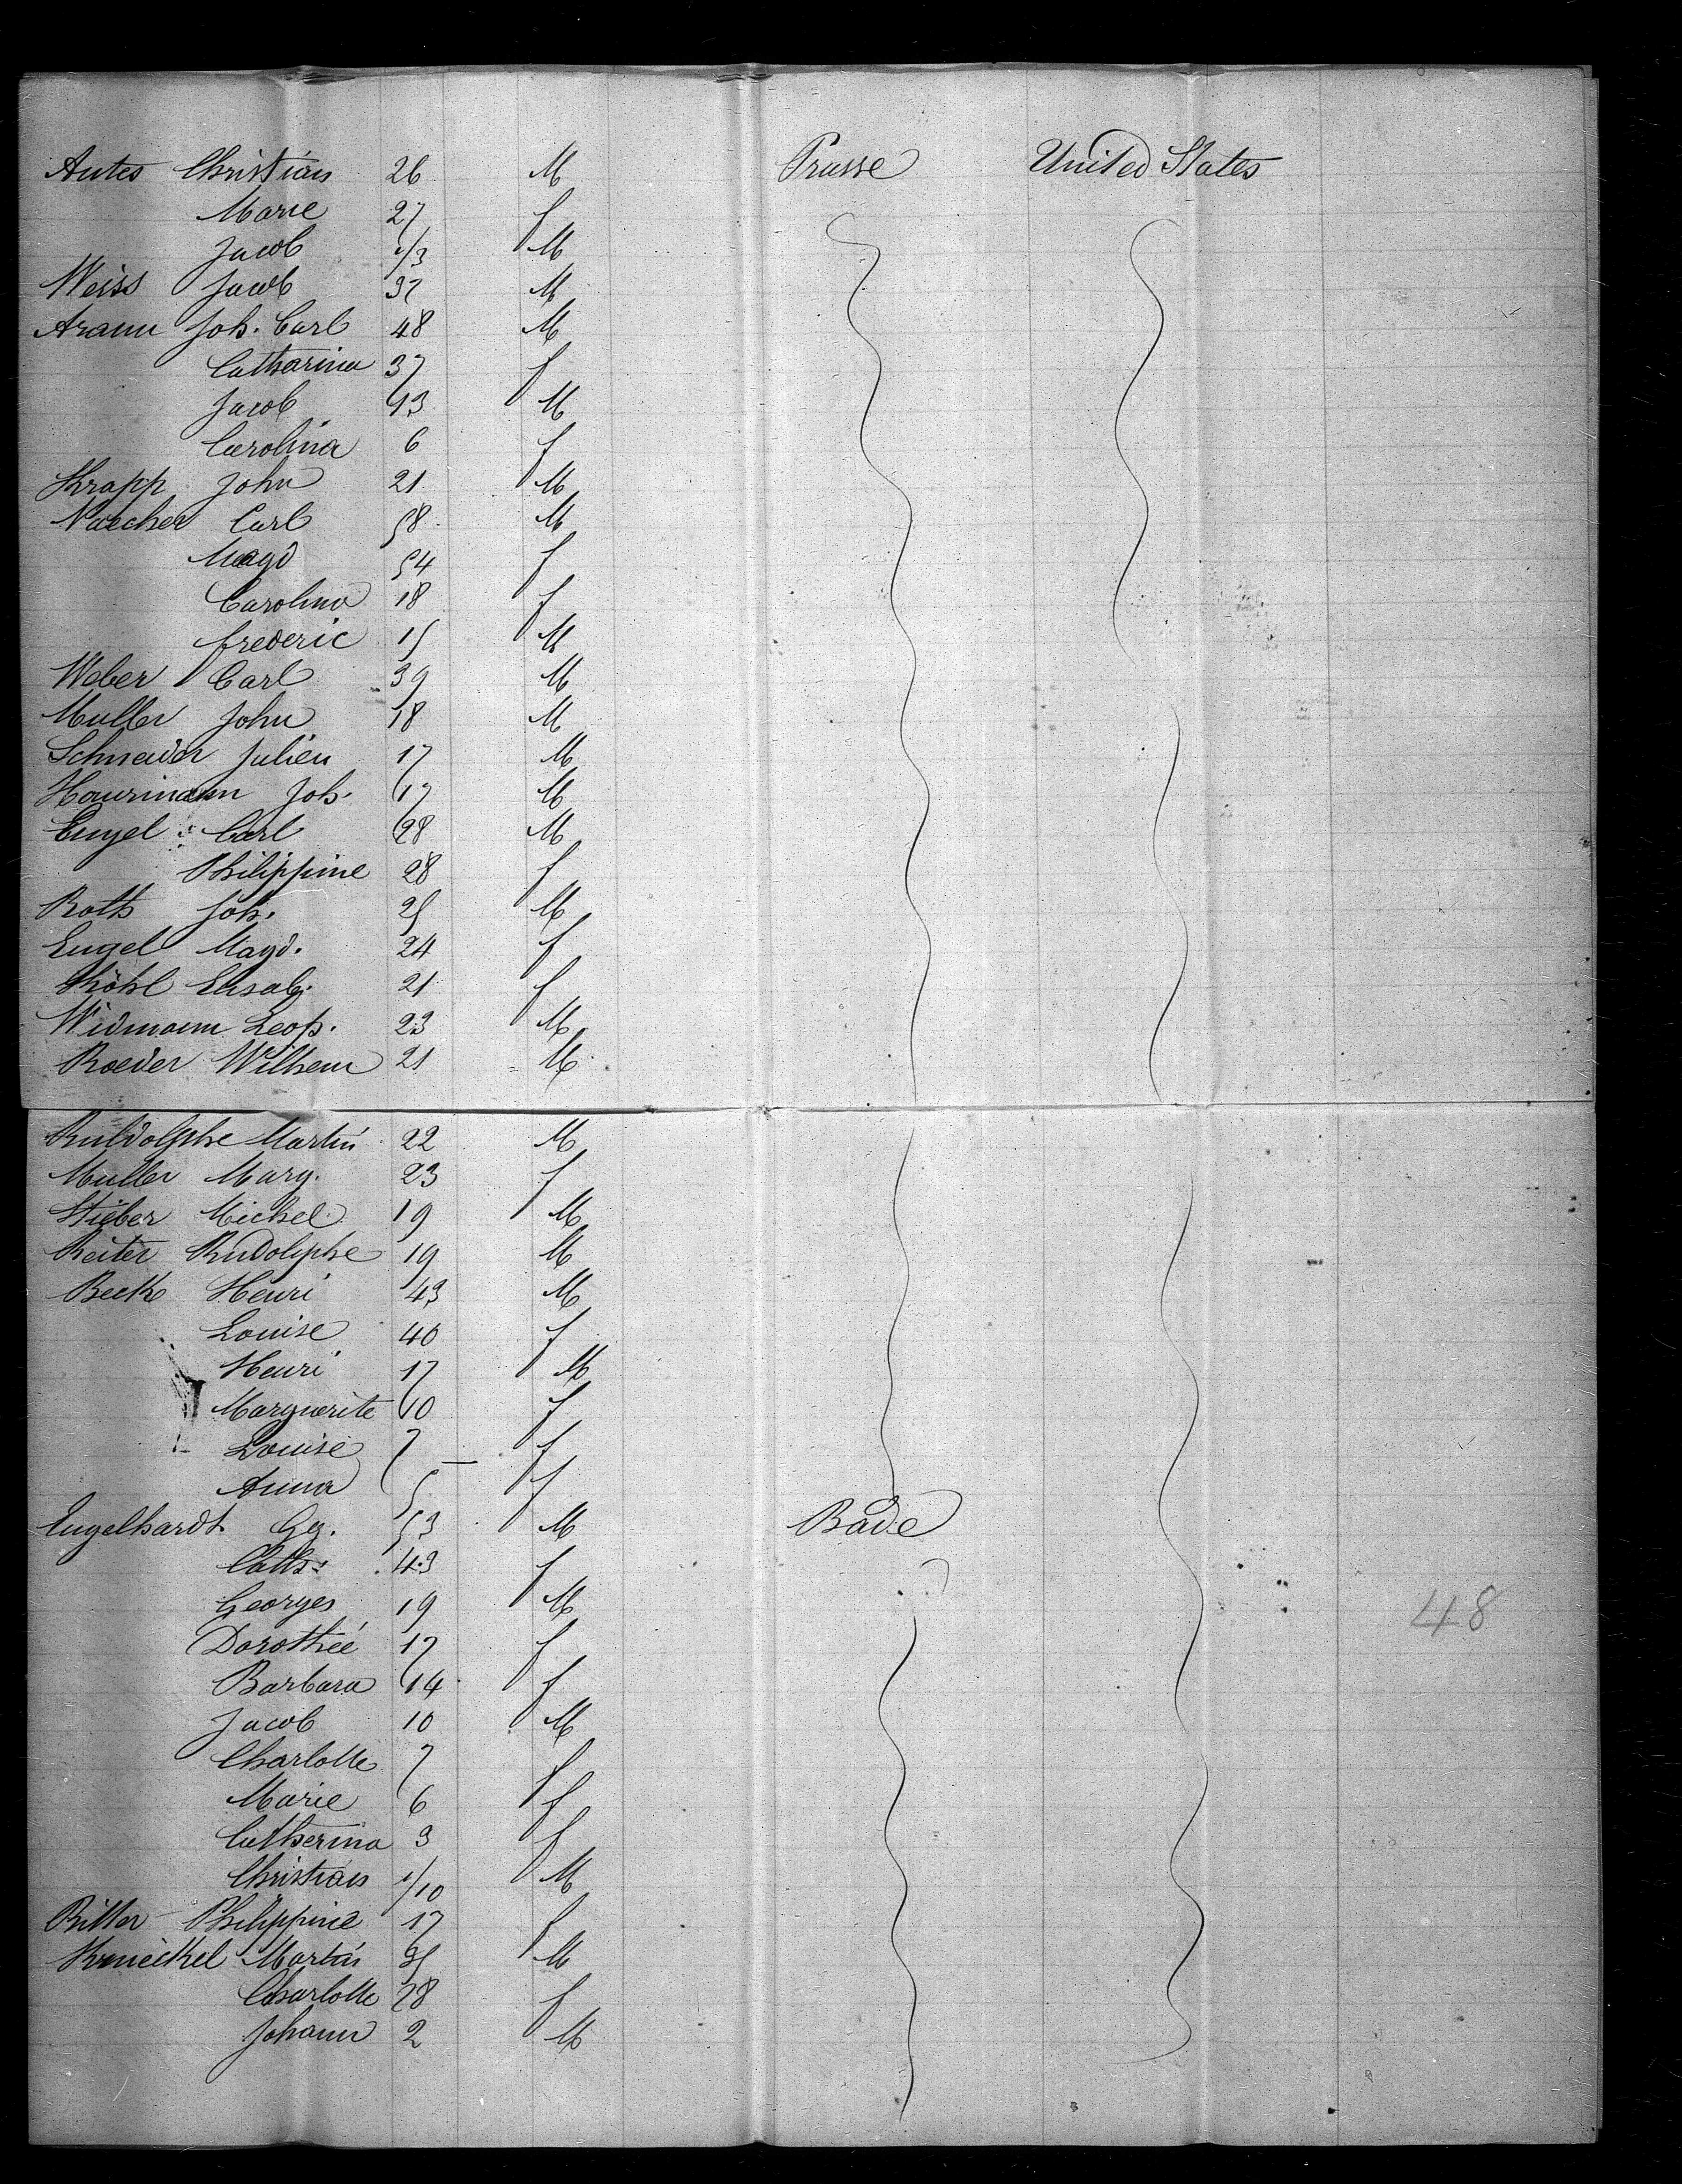 Antes Christian 26 M Prusse United States
Marie 27 f
Jacob 1/3 M
Weiss Jacob 37 M
Aramn Joh. Carl 48 M
Catharina 37 f
Jacob 13 M
Carolina 6 f
Krapp John 21 M
Naecher Carl 58 M
Magd 54 f
Carolina 18 f
frederic 15 M
Weber Carl 39 M
Muller John 18 M
Schneider Julien 17 M
Haurmann Joh. 17 M
Engel Carl 28 M
Philippine 28 f
Roth Joh. 25 M
Engel Magd. 24 f
Köhl Elisab. 21 f
Widmann Leop. 23 M
Roeder Wilhem 21 M
Ruldolphe Martin 22 M
Muller Marg. 23 f
Stieber Michel 19 M
Reiter Rudolphe 19 M
Beck Henri 43 M
Louise 40 f
Henri 17 M
Marguerite 10 f
Louise 7 f
Anna 5 f
Engelhardt Gg. 53 M Bade
Cath: 43 f
Georges 19 M
Dorothée 17 f
Barbara 14 f
Jacob 10 M
Charlotte 7 f
Marie 6 f
Catherina 3 f
Christian 1/10 M
Ritter Philippine 17 f
Martin M
Charlotte 28 f
Johann 2 M
48